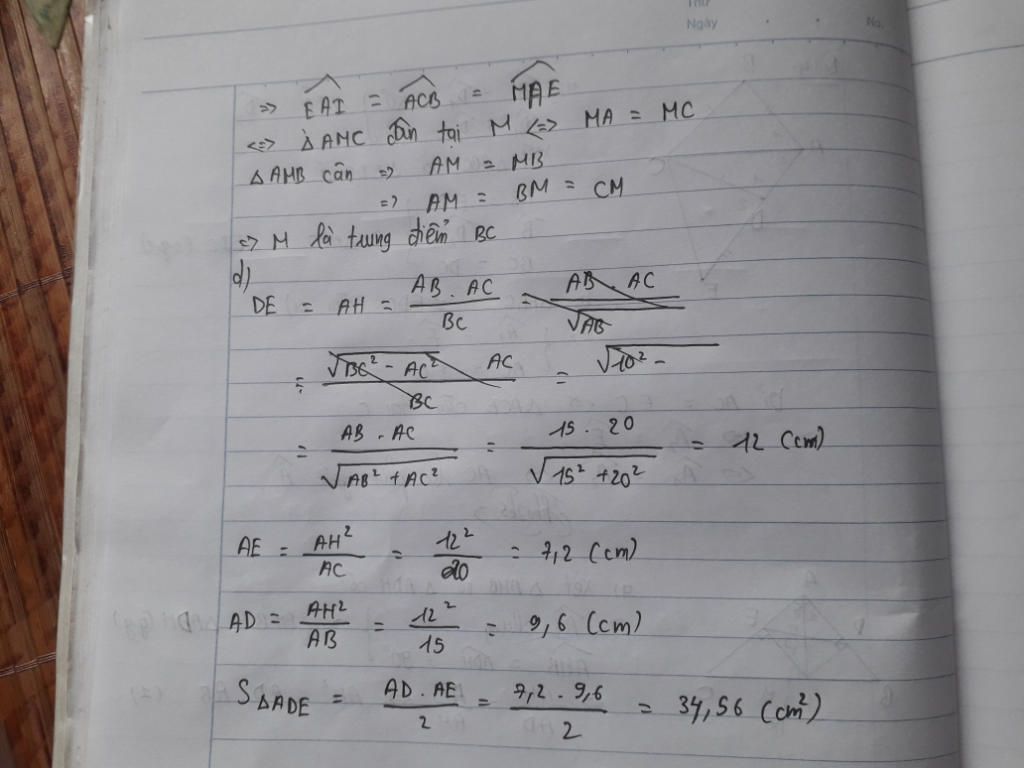 Thứ
Ngày No.
⇒ ∠EAI = ∠ACB = ∠MAE
⇔ ΔAMC cân tại M ⇔ MA = MC
ΔAMB cân ⇒ AM = MB
⇒ AM = BM = CM
⇒ M là trung điểm BC
d)
DE = AH = (AB . AC)/BC = (AB . AC)/√AB
= (√(BC² - AC²) AC)/BC = √(10² -
= (AB . AC)/√(AB² + AC²) = (15 . 20)/√(15² + 20²) = 12 (cm)
AE = AH²/AC = 12²/20 = 7,2 (cm)
AD = AH²/AB = 12²/15 = 9,6 (cm)
SΔADE = (AD . AE)/2 = (7,2 . 9,6)/2 = 34,56 (cm²)